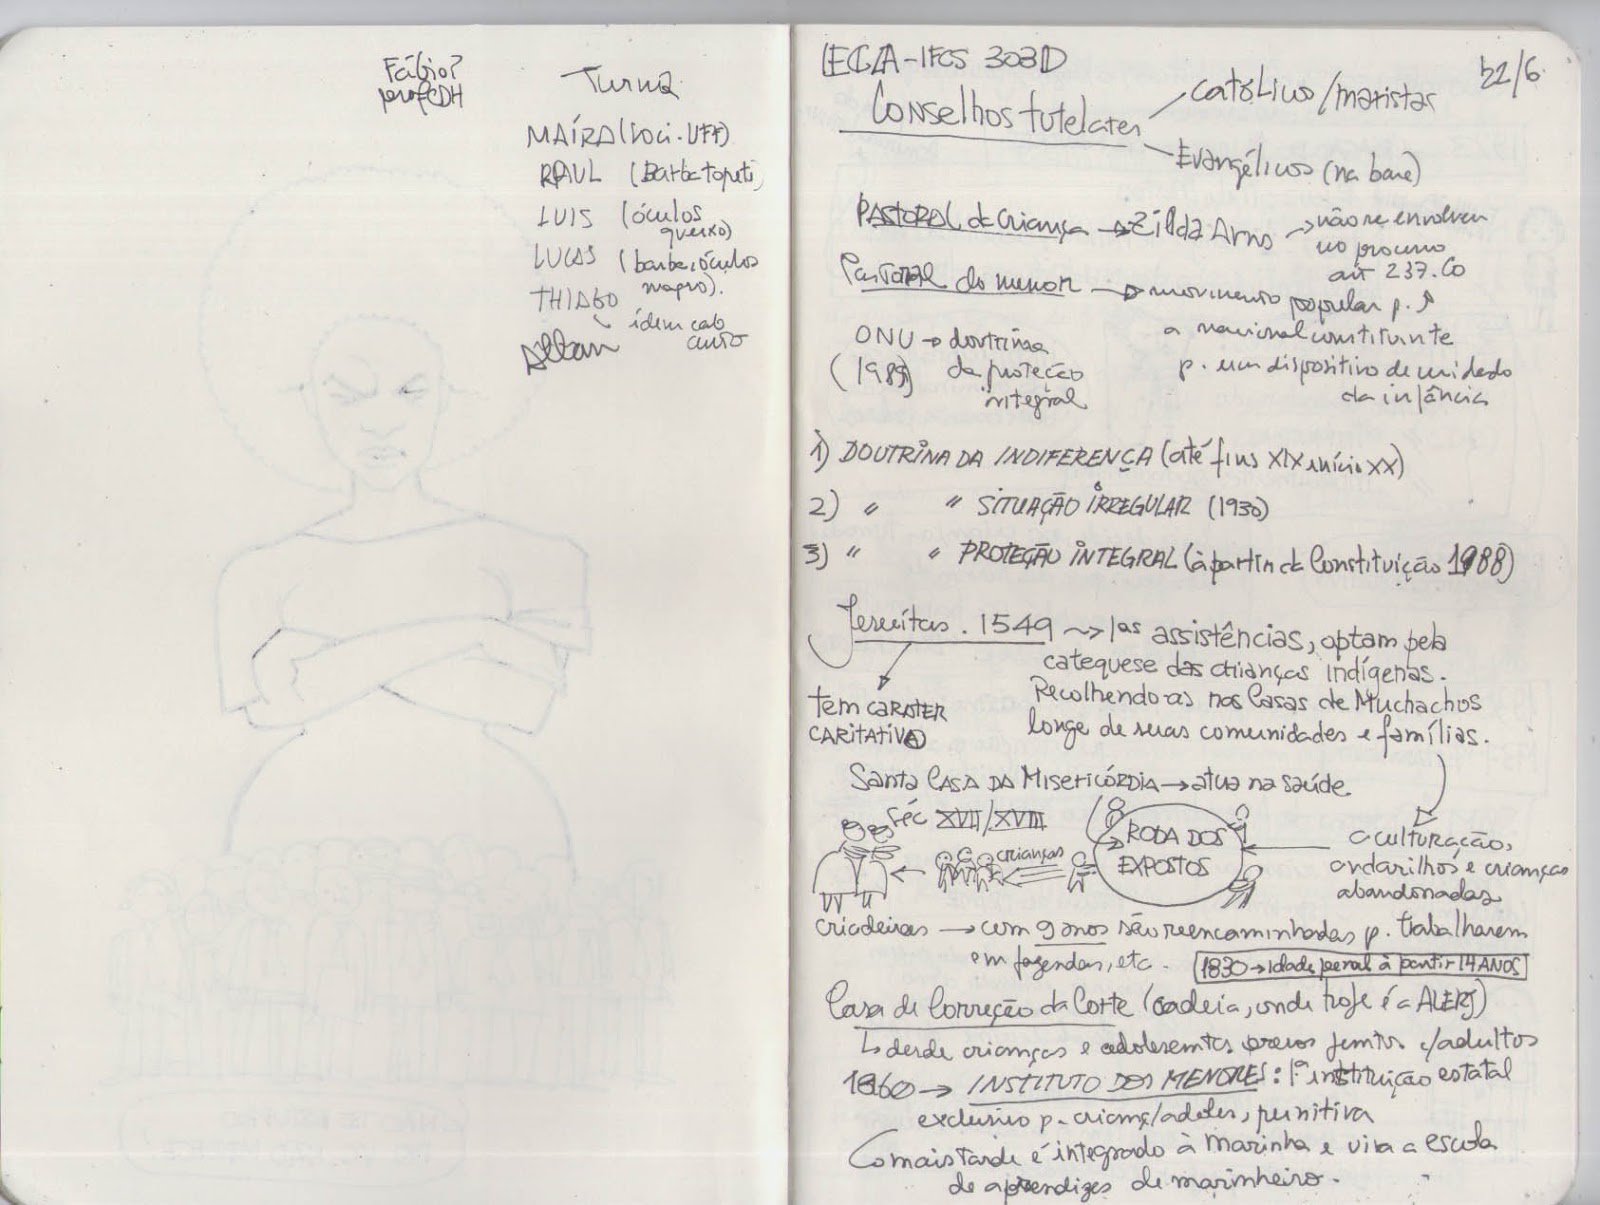 Fábio?
prof CDH
Turma
MAÍRA (soci. UFF)
RAUL (Barba topete)
LUIS (óculos
queixo)
LUCAS (barba, óculos
magro).
THIAGO
idem cab
curto
Allan
IECA-IFCS 303D
22/6
Conselhos tutelares
católicos/maristas
Evangélicos (na base)
PASTORAL da criança → Zilda Arns → não se envolveu
no processo
art 227. CO
Pastoral do menor → movimento popular p.
a nacional constituinte
p. um dispositivo de cuidado
da infância
ONU → doutrina
(1989) da proteção
integral
1) DOUTRINA DA INDIFERENÇA (até fins XIX início XX)
2) " " SITUAÇÃO IRREGULAR (1930)
3) " " PROTEÇÃO INTEGRAL (à partir da Constituição 1988)
Jesuítas. 1549 → 1as assistências, optam pela
catequese das crianças indígenas.
Recolhendo-as nas Casas de Muchachos
longe de suas comunidades e famílias.
tem CARATER
CARITATIVO
Santa CASA DA MISERICÓRDIA → atua na saúde
séc XVII/XVIII
RODA DOS
EXPOSTOS
crianças
aculturação,
andarilhos e crianças
abandonadas
criadeiras → com 9 anos são reencaminhadas p. trabalharem
em fazendas, etc.
1830 → idade penal à partir 14 ANOS
Casa de Correção da Corte (cadeia, onde hoje é a ALERJ)
↳ desde crianças e adolescentes presos juntos c/adultos
1860 → INSTITUTO DOS MENORES: 1ª instituição estatal
exclusivo p. crianç/adoles, punitiva
mais tarde é integrado à marinha e vira a escola
de aprendizes de marinheiro.